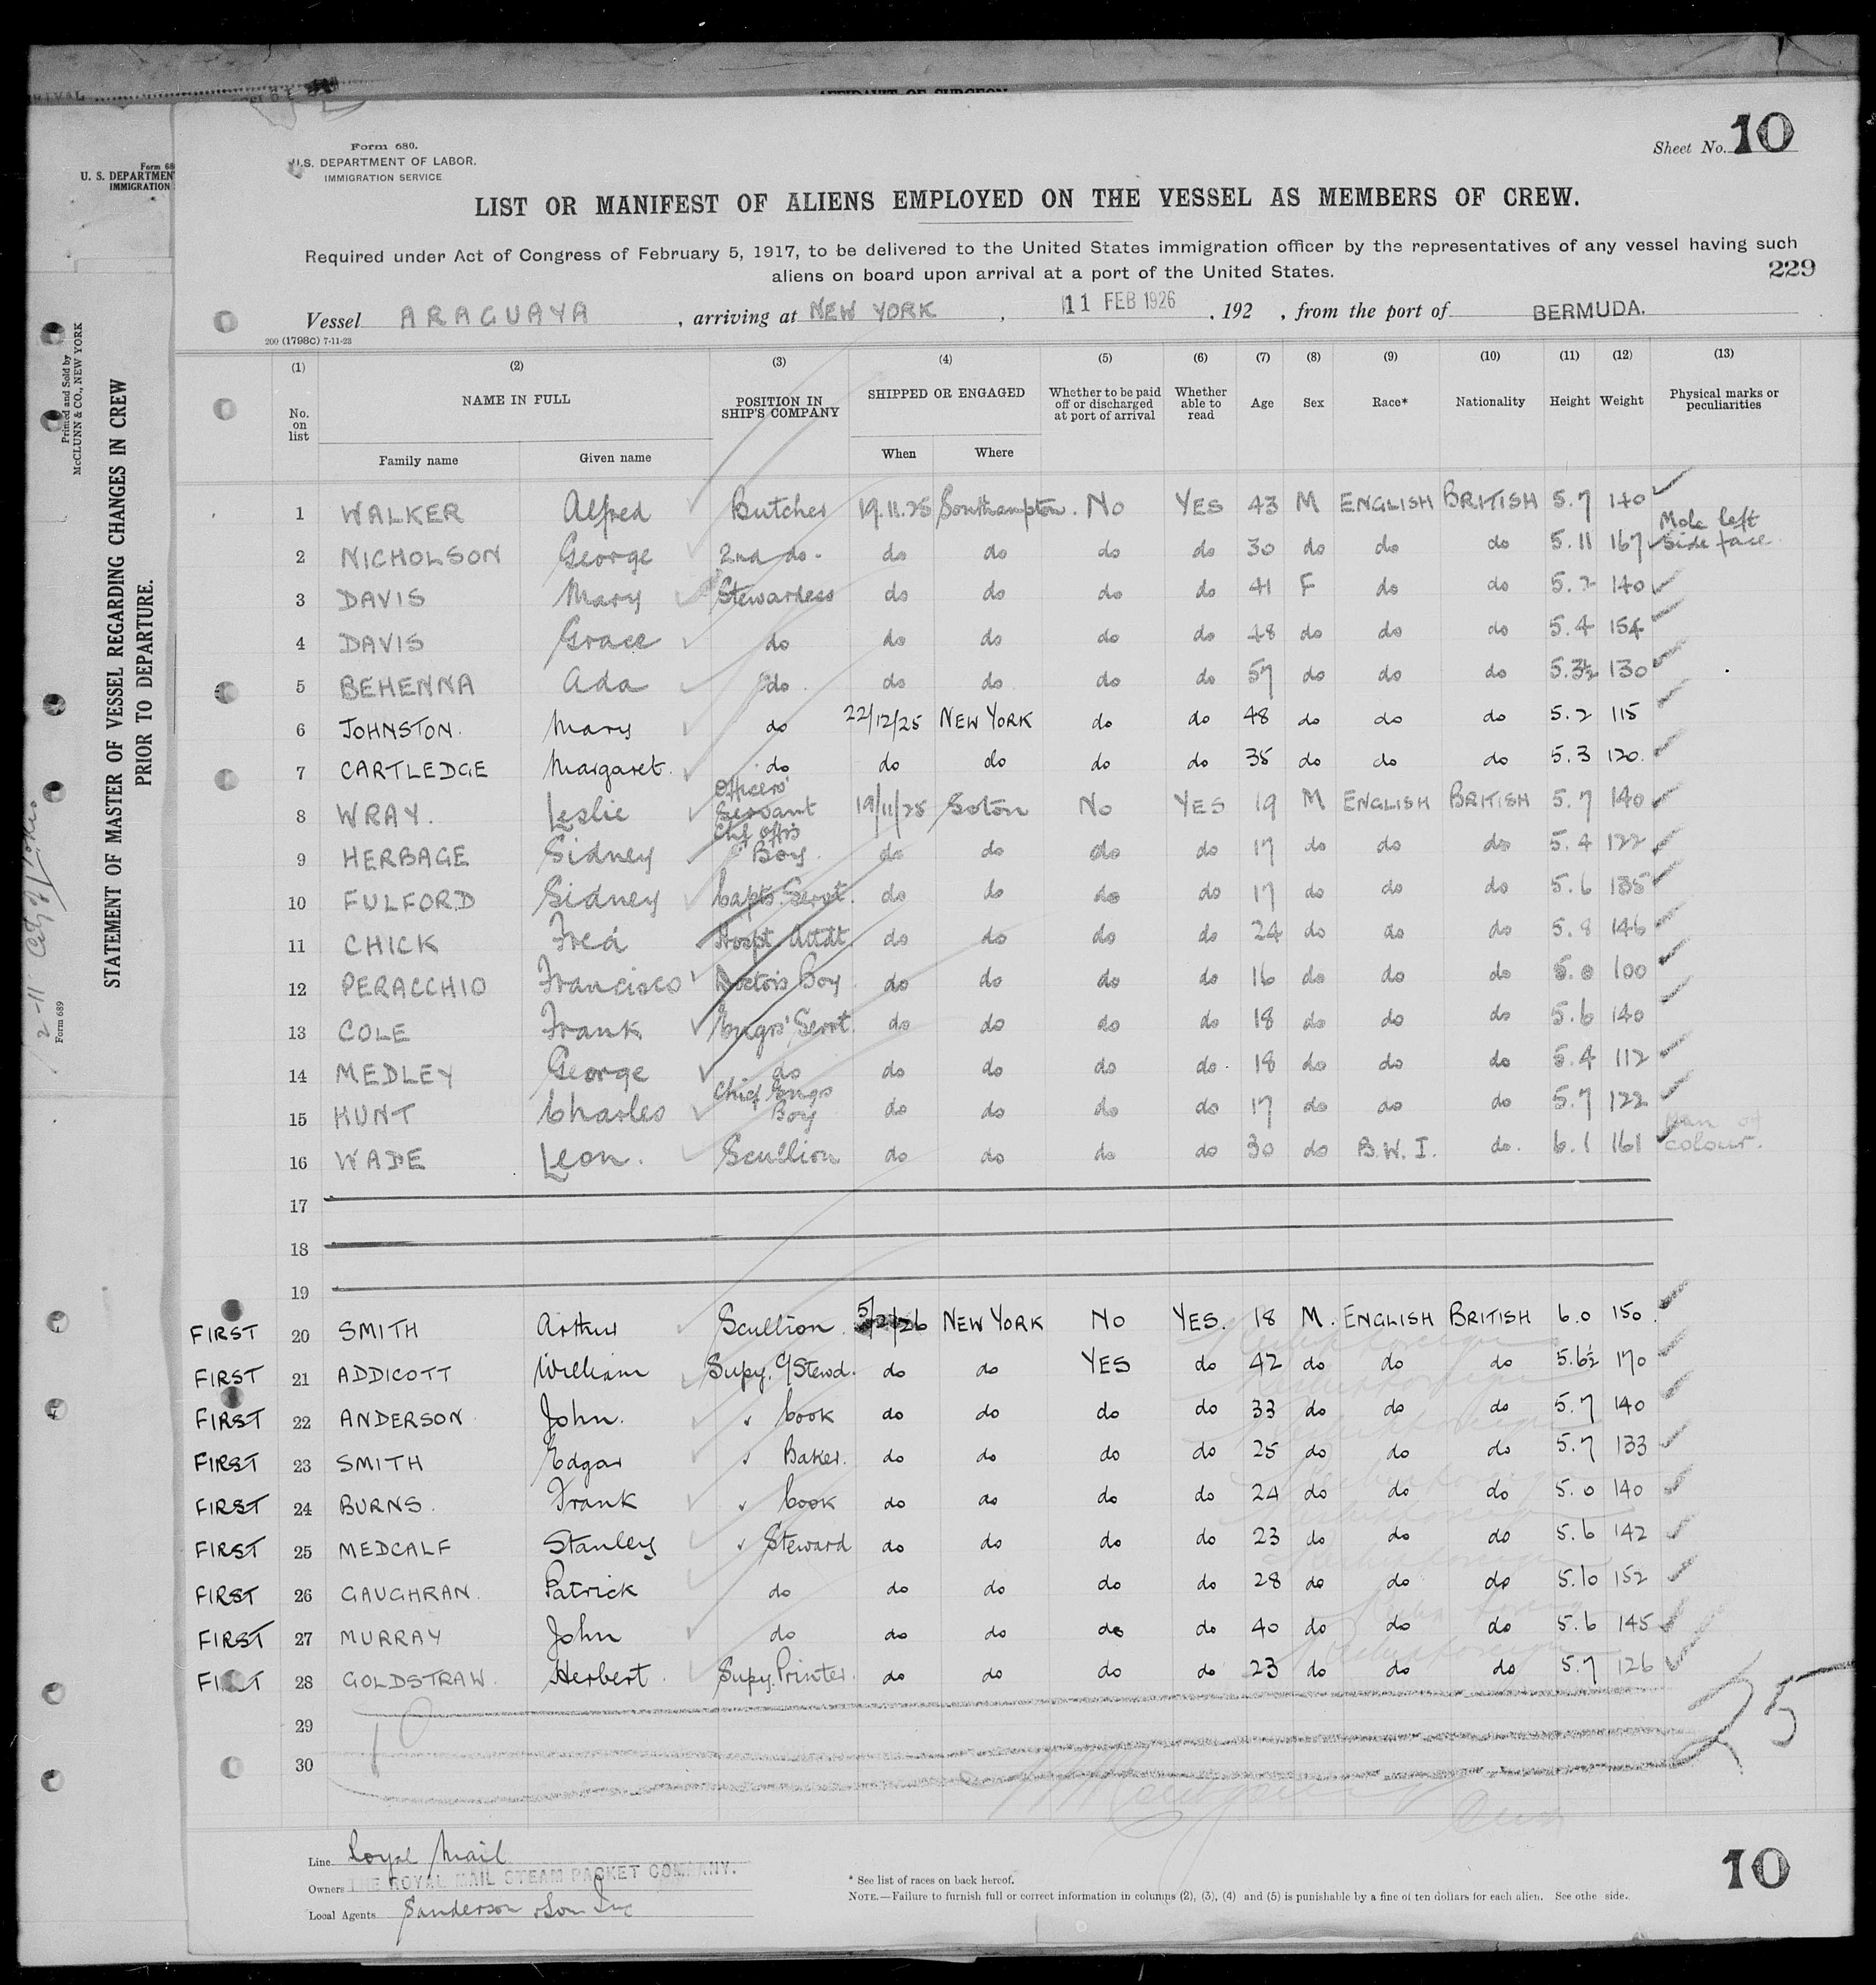 AFFIDAVIT OF SURGEON
Form 680.
U.S. DEPARTMENT OF LABOR.
IMMIGRATION SERVICE
Sheet No. 10
Form 68
U. S. DEPARTMEN
IMMIGRATION
LIST OR MANIFEST OF ALIENS EMPLOYED ON THE VESSEL AS MEMBERS OF CREW.
Required under Act of Congress of February 5, 1917, to be delivered to the United States immigration officer by the representatives of any vessel having such
aliens on board upon arrival at a port of the United States.
229
Vessel ARAGUAYA, arriving at NEW YORK, 11 FEB 1926, 192 , from the port of BERMUDA.
200 (1798C) 7-11-23
Printed and Sold by
McCLUNN & CO., NEW YORK
STATEMENT OF MASTER OF VESSEL REGARDING CHANGES IN CREW
PRIOR TO DEPARTURE.
Form 689
(1) (2) (3) (4) (5) (6) (7) (8) (9) (10) (11) (12) (13)
No. on list NAME IN FULL POSITION IN SHIP'S COMPANY SHIPPED OR ENGAGED Whether to be paid off or discharged at port of arrival Whether able to read Age Sex Race* Nationality Height Weight Physical marks or peculiarities
Family name Given name When Where
1 WALKER Alfred Butcher 19.11.25 Southampton. No YES 43 M ENGLISH BRITISH 5.7 140
2 NICHOLSON George 2nd do. do do do do 30 do do do 5.11 167 Mole left side face.
3 DAVIS Mary Stewardess do do do do 41 F do do 5.2 140
4 DAVIS Grace do do do do do 48 do do do 5.4 154
5 BEHENNA Ada do do do do do 57 do do do 5.3½ 130
6 JOHNSTON. Mary do 22/12/25 NEW YORK do do 48 do do do 5.2 115
7 CARTLEDGE Margaret. do do do do do 35 do do do 5.3 120.
8 WRAY. Leslie Officers' Servant 19/11/25 Soton No YES 19 M ENGLISH BRITISH 5.7 140
9 HERBAGE Sidney Chf Offrs Boy. do do do do 17 do do do 5.4 122
10 FULFORD Sidney Capts. Servt. do do do do 17 do do do 5.6 135
11 CHICK Fred Hospt. Attdt. do do do do 24 do do do 5.8 146
12 PERACCHIO Francisco Doctor's Boy do do do do 16 do do do 5.0 100
13 COLE Frank Engrs' Servt. do do do do 18 do do do 5.6 140
14 MEDLEY George do do do do do 18 do do do 5.4 112
15 HUNT Charles Chief Engrs Boy do do do do 17 do do do 5.7 122
16 WADE Leon. Scullion do do do do 30 do B.W.I. do. 6.1 161 Man of colour.
17
18
19
FIRST 20 SMITH Arthur Scullion. 5/2/26 NEW YORK No YES. 18 M. ENGLISH BRITISH 6.0 150.
FIRST 21 ADDICOTT William Supy. C/Stewd. do do YES do 42 do do do 5.6½ 170
FIRST 22 ANDERSON John. " Cook do do do do 33 do do do 5.7 140
FIRST 23 SMITH Edgar " Baker. do do do do 25 do do do 5.7 133
FIRST 24 BURNS. Frank " Cook do do do do 24 do do do 5.0 140
FIRST 25 MEDCALF Stanley " Steward do do do do 23 do do do 5.6 142
FIRST 26 GAUGHRAN. Patrick do do do do do 28 do do do 5.10 152
FIRST 27 MURRAY John do do do do do 40 do do do 5.6 145
FIRST 28 GOLDSTRAW. Herbert. Supy. Printer. do do do do 23 do do do 5.7 126
29
30
25
Line Royal Mail
Owners THE ROYAL MAIL STEAM PACKET COMPANY.
Local Agents Sanderson & Son Inc
* See list of races on back hereof.
NOTE.—Failure to furnish full or correct information in columns (2), (3), (4) and (5) is punishable by a fine of ten dollars for each alien. See othe side.
10